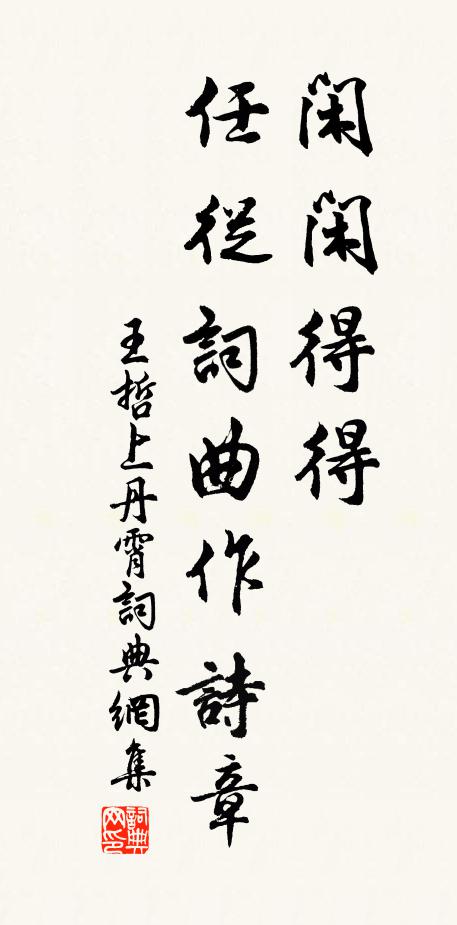 閑閑得得
任從詞曲作詩章
王哲上丹霄詞典網集
詞典网印